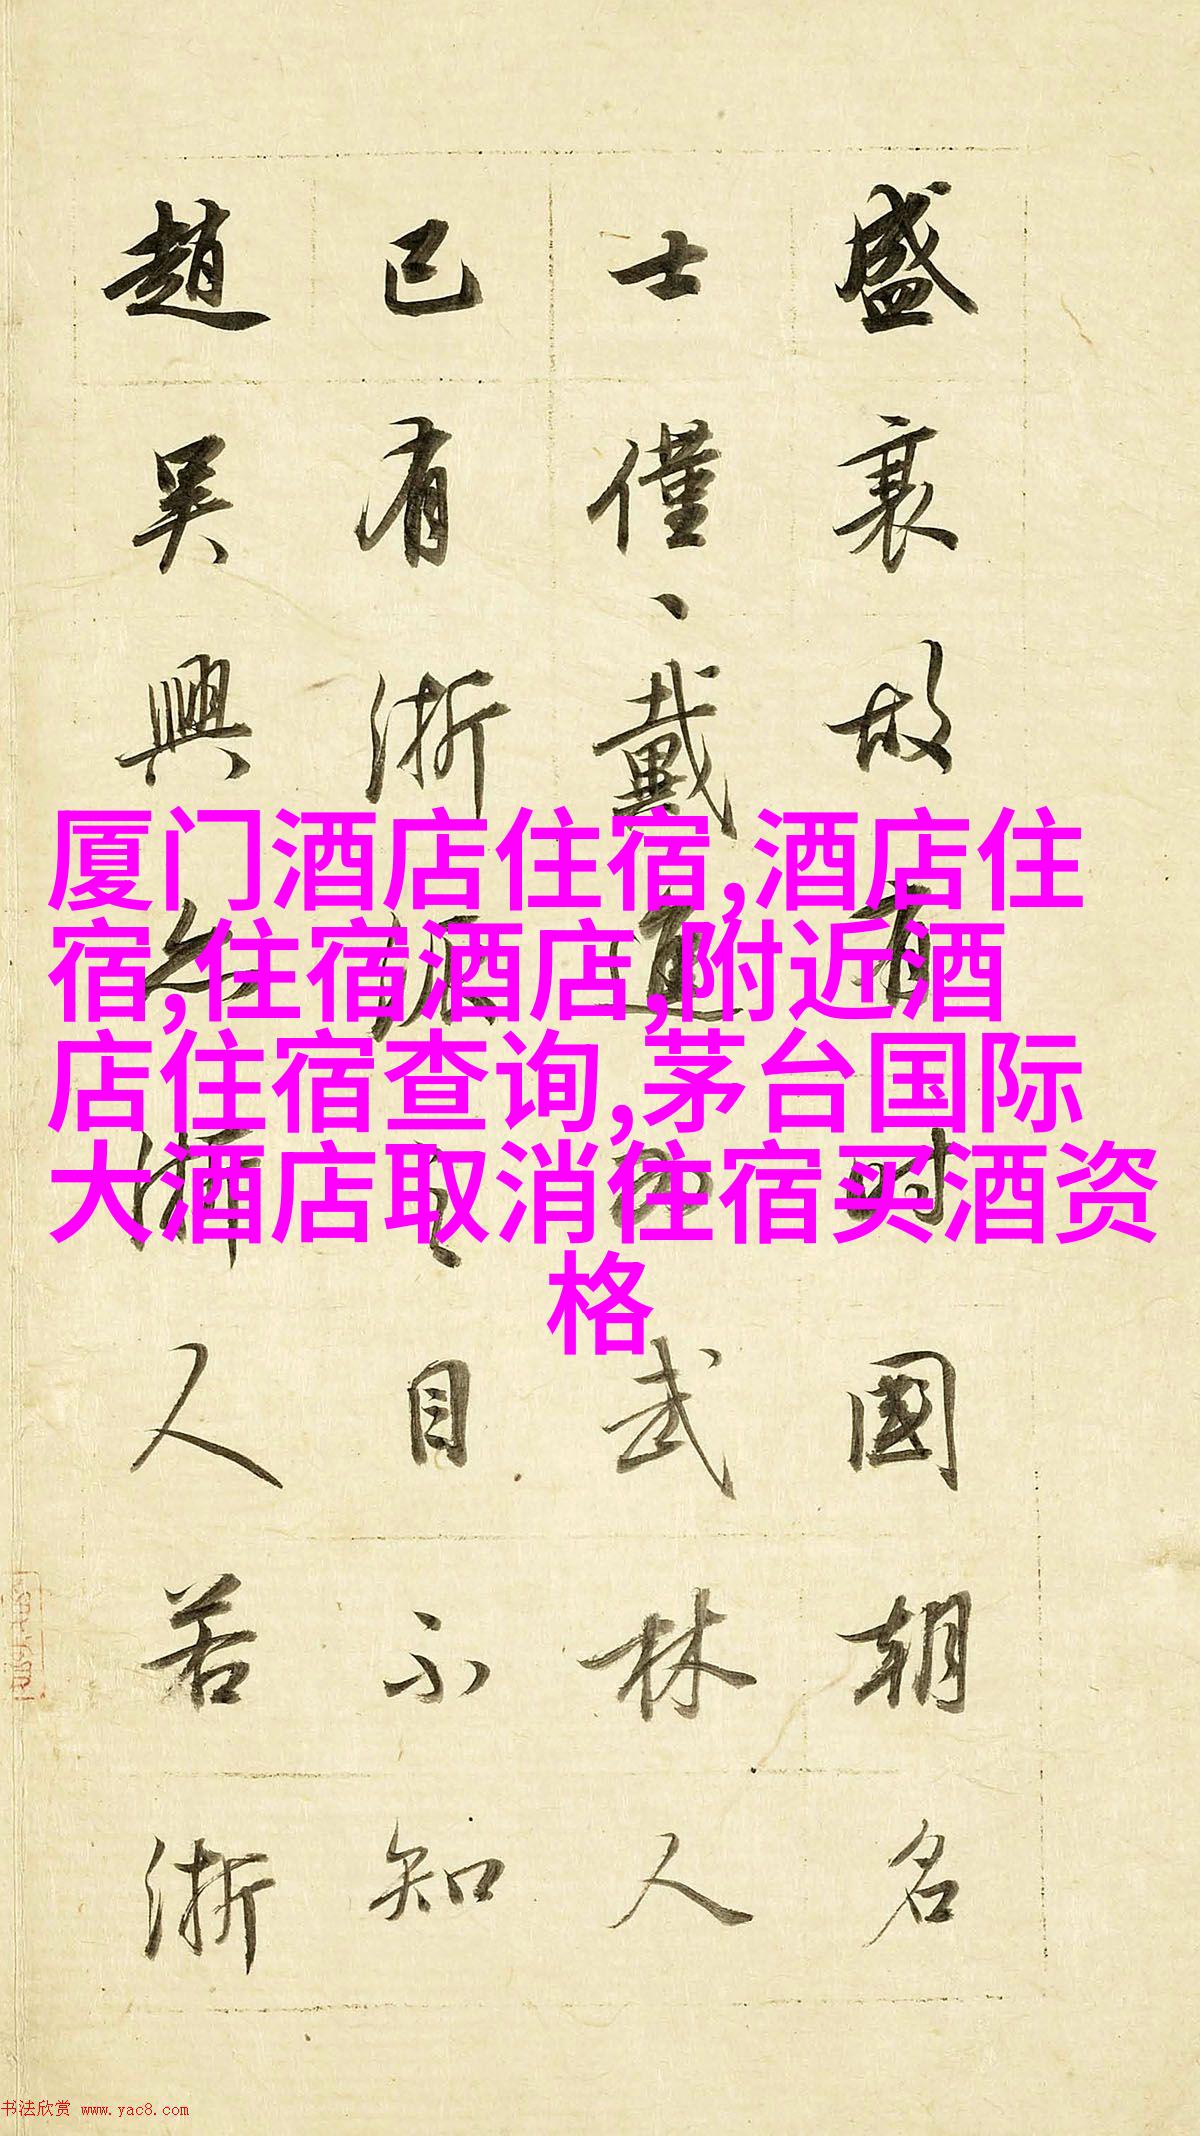 盛衰故有時國朝名
士僅、戴進武林人
已有浙派之目不知
趙吳興亦浙人若浙
厦门酒店住宿,酒店住
宿,住宿酒店,附近酒
店住宿查询,茅台国际
大酒店取消住宿买酒资
格
书法欣赏 www.yac8.com